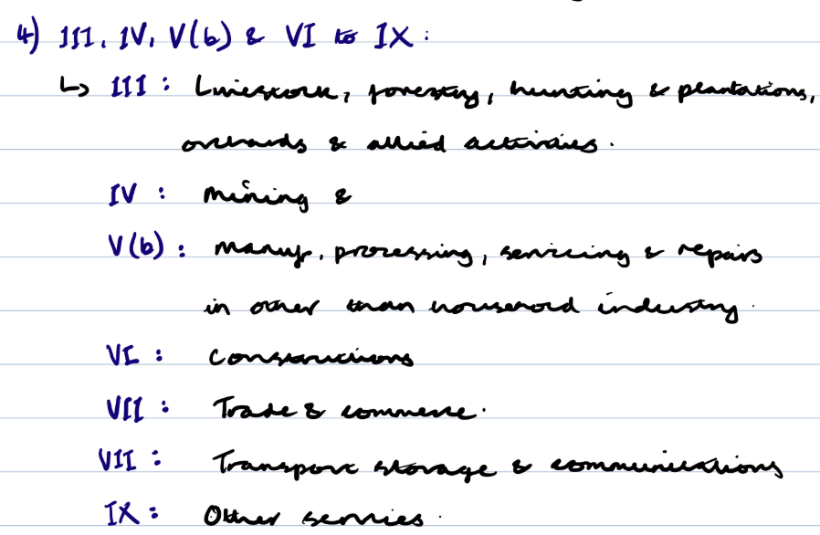 4) III, IV, V(b) & VI to IX :
↳ III : Livestock, forestry, hunting & plantations,
orchards & allied activities.
IV : Mining &
V(b) : Manuf. processing, servicing & repairs
in other than household industry.
VI : Constructions
VII : Trade & commerce.
VII : Transport storage & communications
IX : Other services.